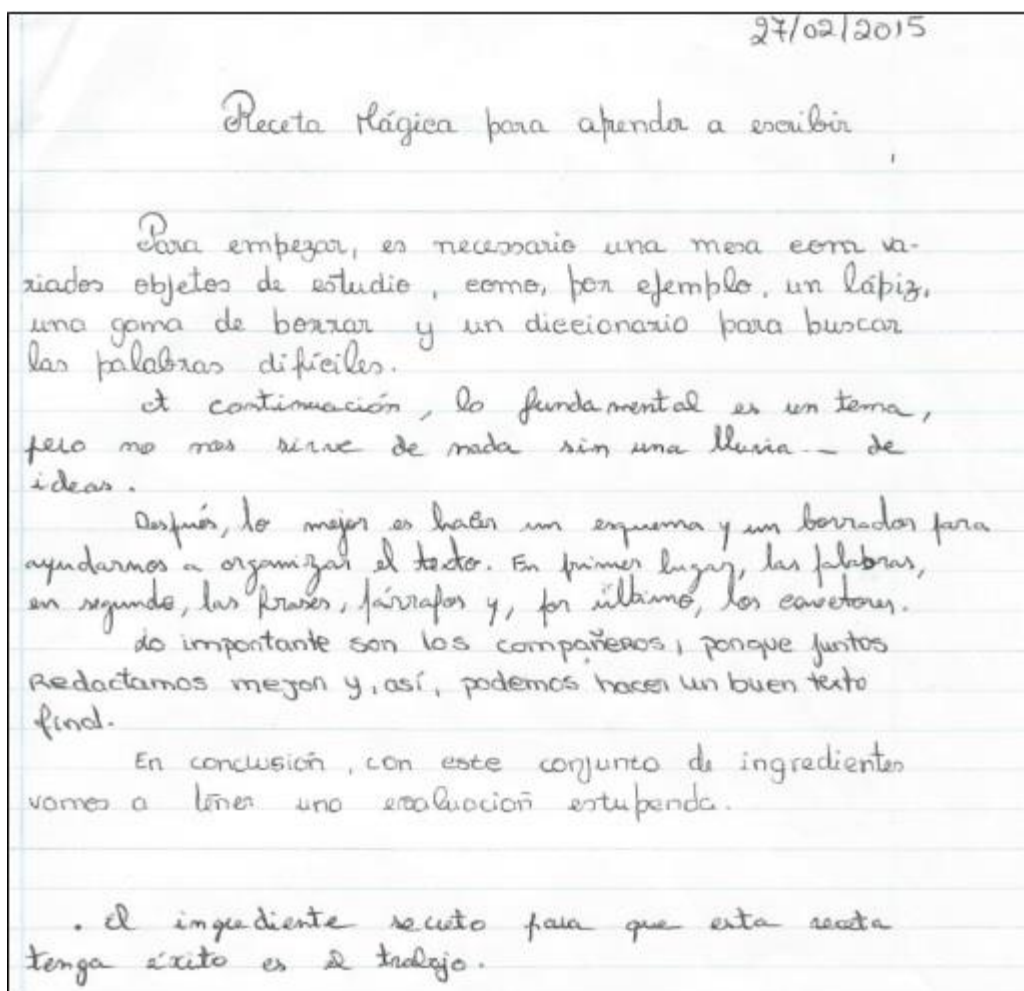 27/02/2015
Receta Mágica para aprender a escribir
Para empezar, es necessario una mesa com va-
riados objetos de estudio, como, por ejemplo, un lápiz,
una goma de borrar y un diccionario para buscar
las palabras difíciles.
A continuación, lo fundamental es un tema,
pero no nos sirve de nada sin una lluvia - de
ideas.
Después, lo mejor es hacer un esquema y un borrador para
ayudarnos a organizar el texto. En primer lugar, las palabras,
en segundo, las frases, párrafos y, por último, los conectores.
Lo importante son los compañeros, porque juntos
redactamos mejor y, así, podemos hacer un buen texto
final.
En conclusión, con este conjunto de ingredientes
vamos a tener una evaluación estupenda.
. El ingrediente secreto para que esta receta
tenga éxito es el trabajo.